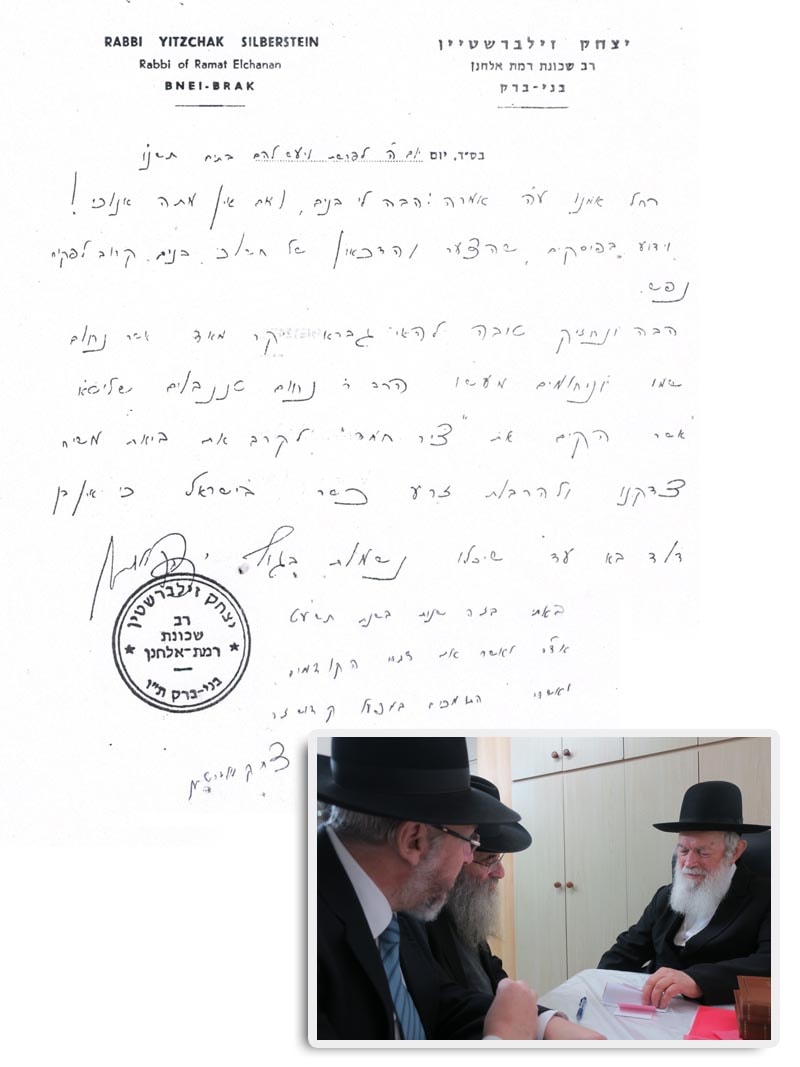 RABBI YITZCHAK SILBERSTEIN
Rabbi of Ramat Elchanan
BNEI-BRAK
יצחק זילברשטיין
רב שכונת רמת אלחנן
בני-ברק
בס״ד, יום ה׳ לפרשת
רחל אמנו ע״ה אמרה: הבה לי בנים, ואם אין מתה אנוכי!
וידוע בפוסקים, שהצער והדכאון של חשוכי בנים קרוב לפקוח
נפש.
הבה ונחזיק טובה להאי גברא יקר מאד אשר נחום
שמו וניחומים מעשיו הרב ר׳ נחום שליט״א
אשר הקים את לקרב את ביאת משיח
צדקנו ולהרבות זרע כשר בישראל כי אין בן
דוד בא עד שיכלו נשמות בגוף
יצחק זילברשטיין
רב
שכונת
רמת-אלחנן
בני-ברק ת״ו
באתי בזה שנית בשנת תשע״ט
לאשר את הקודמים
ואשרי התומכים במפעל קדוש זה